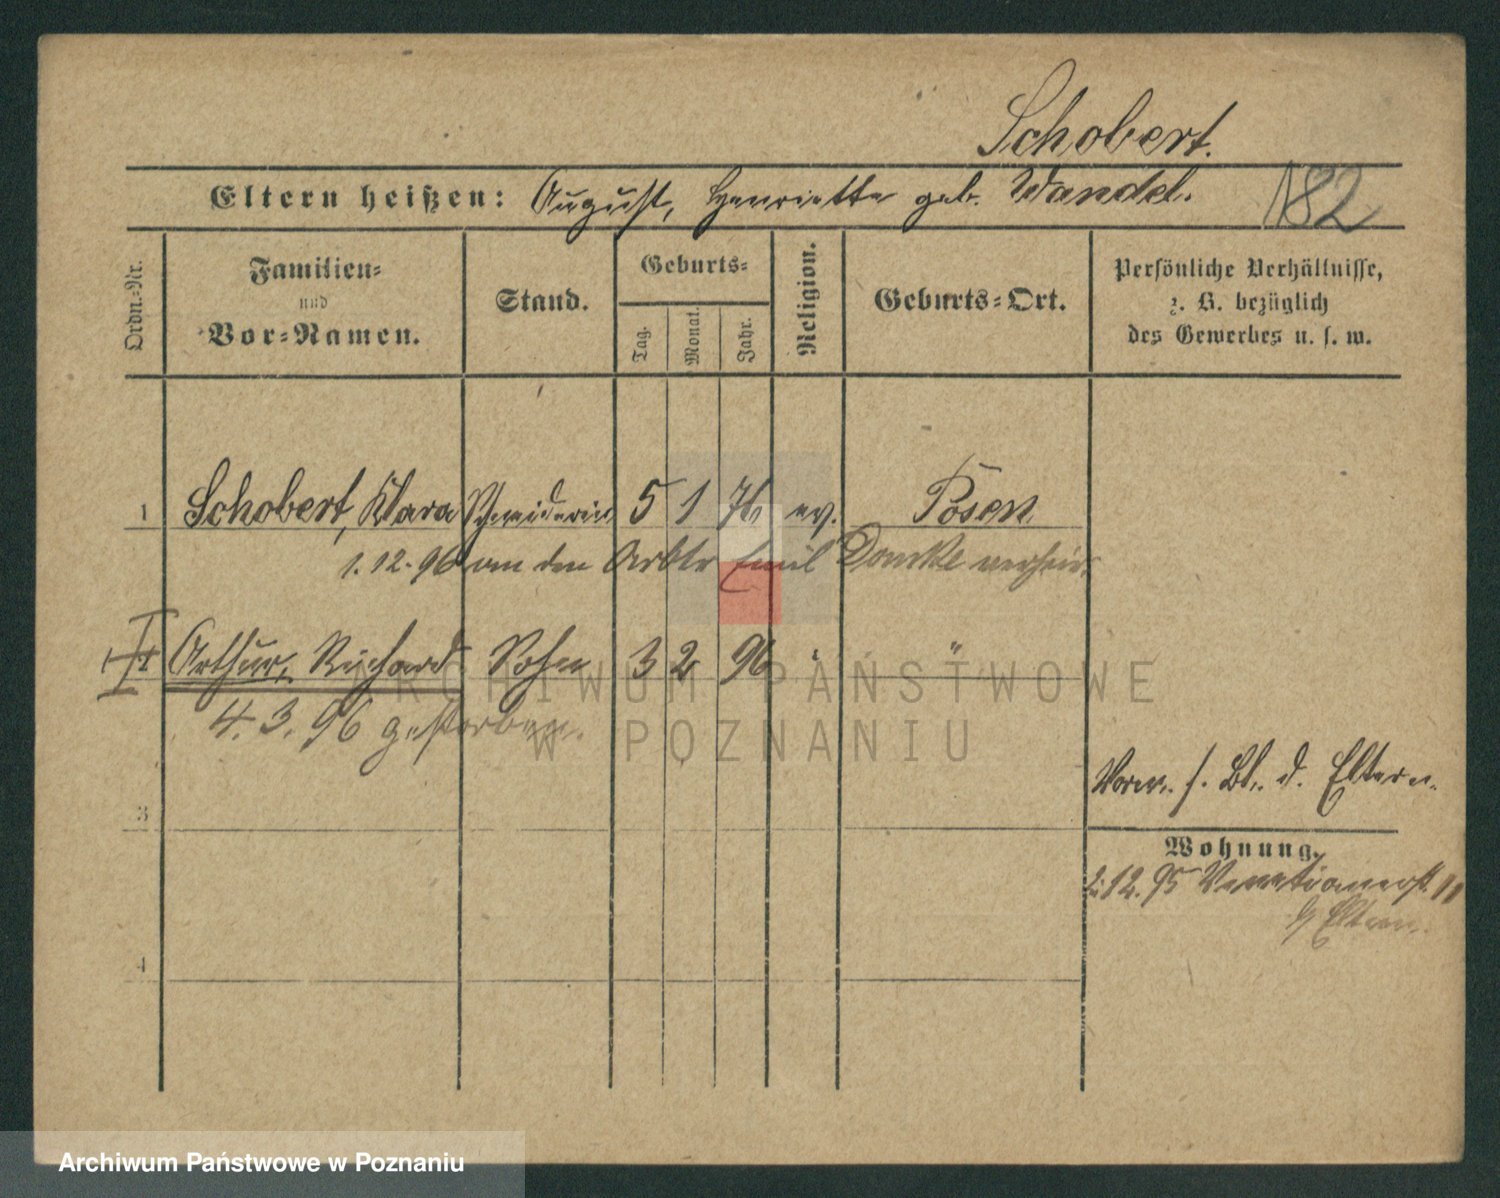 Schobert.
Eltern heißen: August, Henriette geb. Wandel. 182
Ordn.-Nr.
Familien-
und
Vor-Namen.
Stand.
Geburts-
Tag.
Monat.
Jahr.
Religion.
Geburts-Ort.
Persönliche Verhältnisse,
z. B. bezüglich
des Gewerbes u. s. w.
1 Schobert, Klara Schneiderin 5 1 76 ev. Posen
1.12.96 an den Arbtr Emil Domke verheir.
Arthur, Richard Sohn 3 2 96 " "
4.3.96 gestorben.
ARCHIWUM PAŃSTWOWE
W POZNANIU
Vorw. s. Bl. d. Eltern.
3
Wohnung.
2.12.95 Venetianerst. 11
b/ Eltern.
4
Archiwum Państwowe w Poznaniu